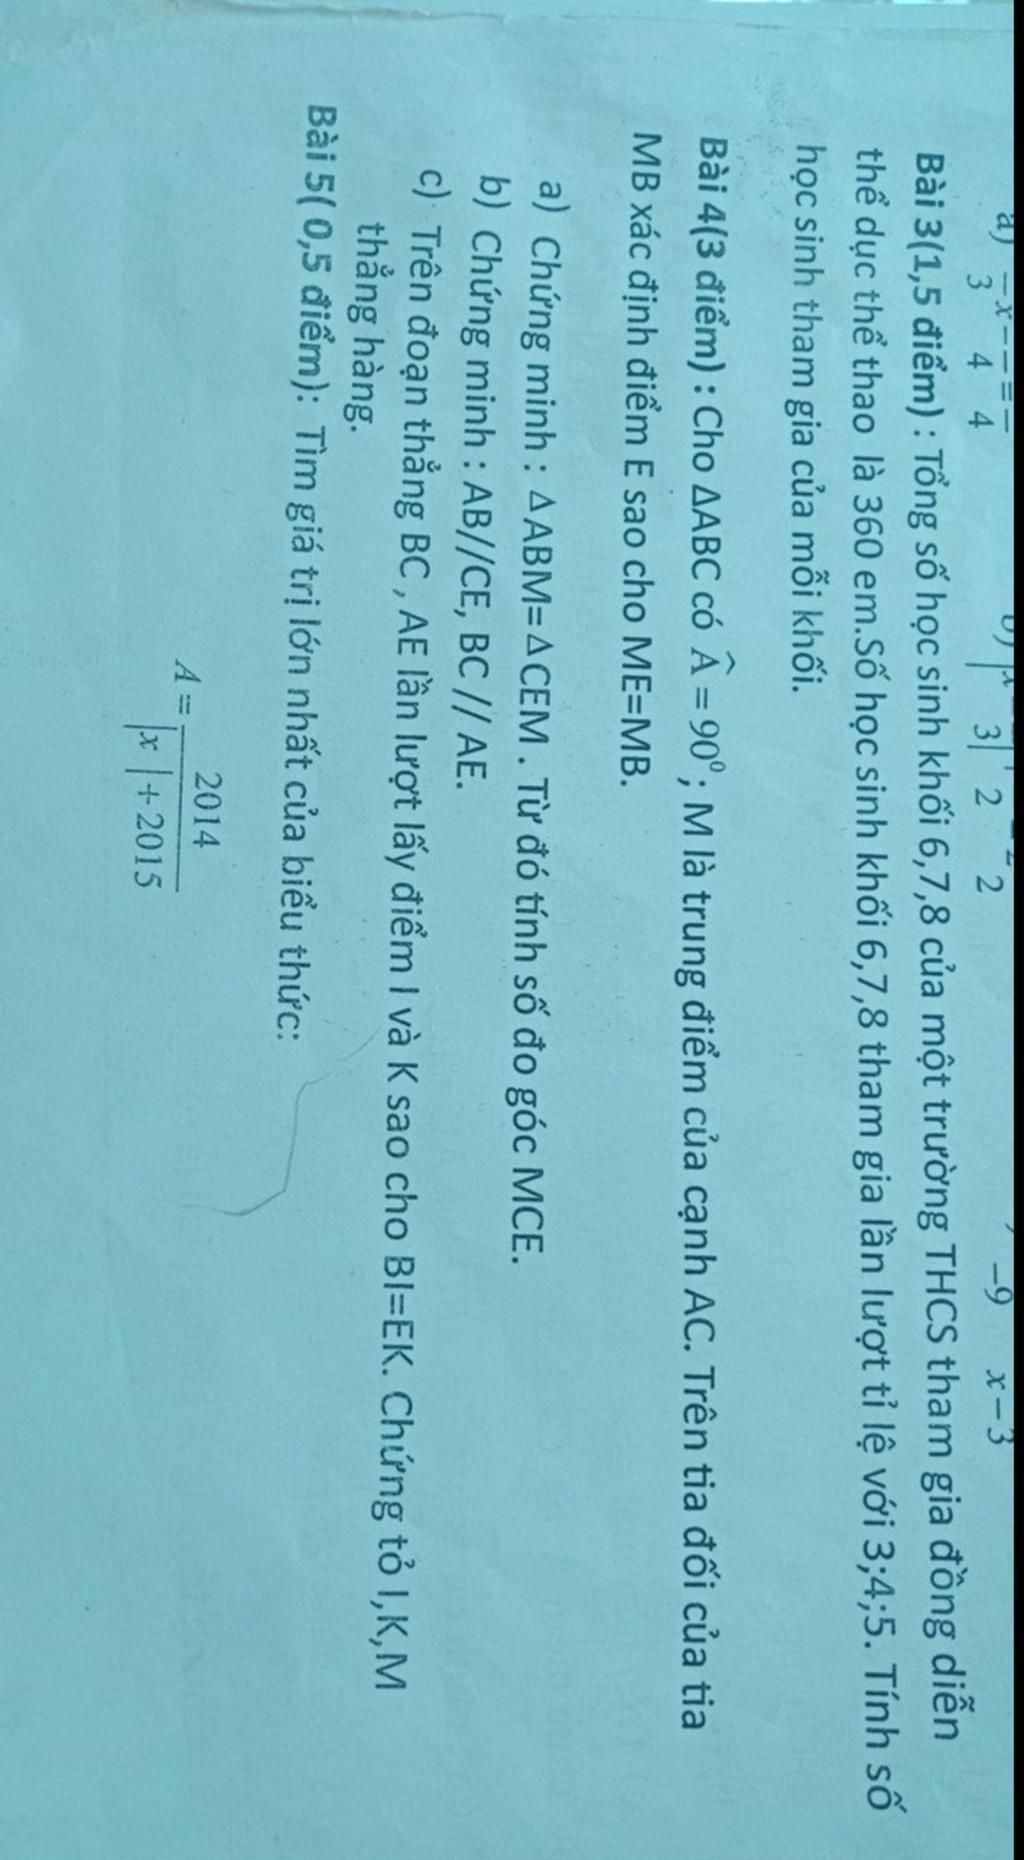 a) x
3 4 4 3 2 2 -9 x-3
Bài 3(1,5 điểm) : Tổng số học sinh khối 6,7,8 của một trường THCS tham gia đồng diễn
thể dục thể thao là 360 em.Số học sinh khối 6,7,8 tham gia lần lượt tỉ lệ với 3;4;5. Tính số
học sinh tham gia của mỗi khối.
Bài 4(3 điểm) : Cho ΔABC có Â = 90⁰; M là trung điểm của cạnh AC. Trên tia đối của tia
MB xác định điểm E sao cho ME=MB.
a) Chứng minh : ΔABM=ΔCEM . Từ đó tính số đo góc MCE.
b) Chứng minh : AB//CE, BC // AE.
c) Trên đoạn thẳng BC , AE lần lượt lấy điểm I và K sao cho BI=EK. Chứng tỏ I,K,M
thẳng hàng.
Bài 5( 0,5 điểm): Tìm giá trị lớn nhất của biểu thức:
2014
A =
|x |+2015